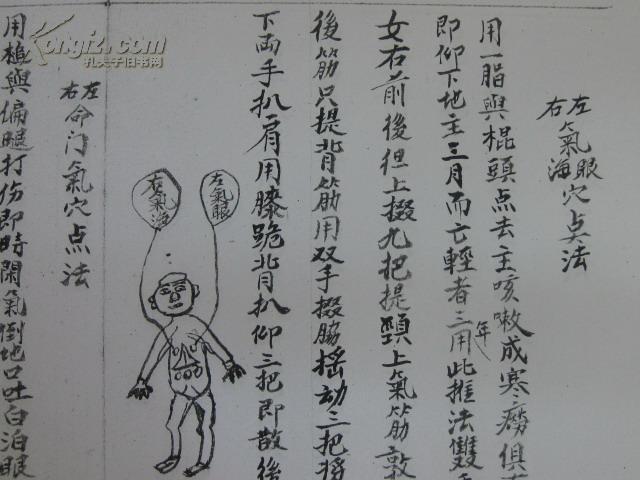 Kongfz.com
孔夫子旧书网
左氣眼
右氣海
穴点法
用一脂與棍頭点去主咳嗽成寒癆俱
即仰下地主三月而亡輕者三年用此推法雙
女右前後但上掇九把提頸上氣筋敦
後筋只提背筋用双手掇脇搖动三把将
下両手扒肩用膝跪背扒仰三把即散後
左氣眼
右氣海
左右命门氣穴点法
用槌與偏腿打伤即時閉氣倒地口吐白泊眼